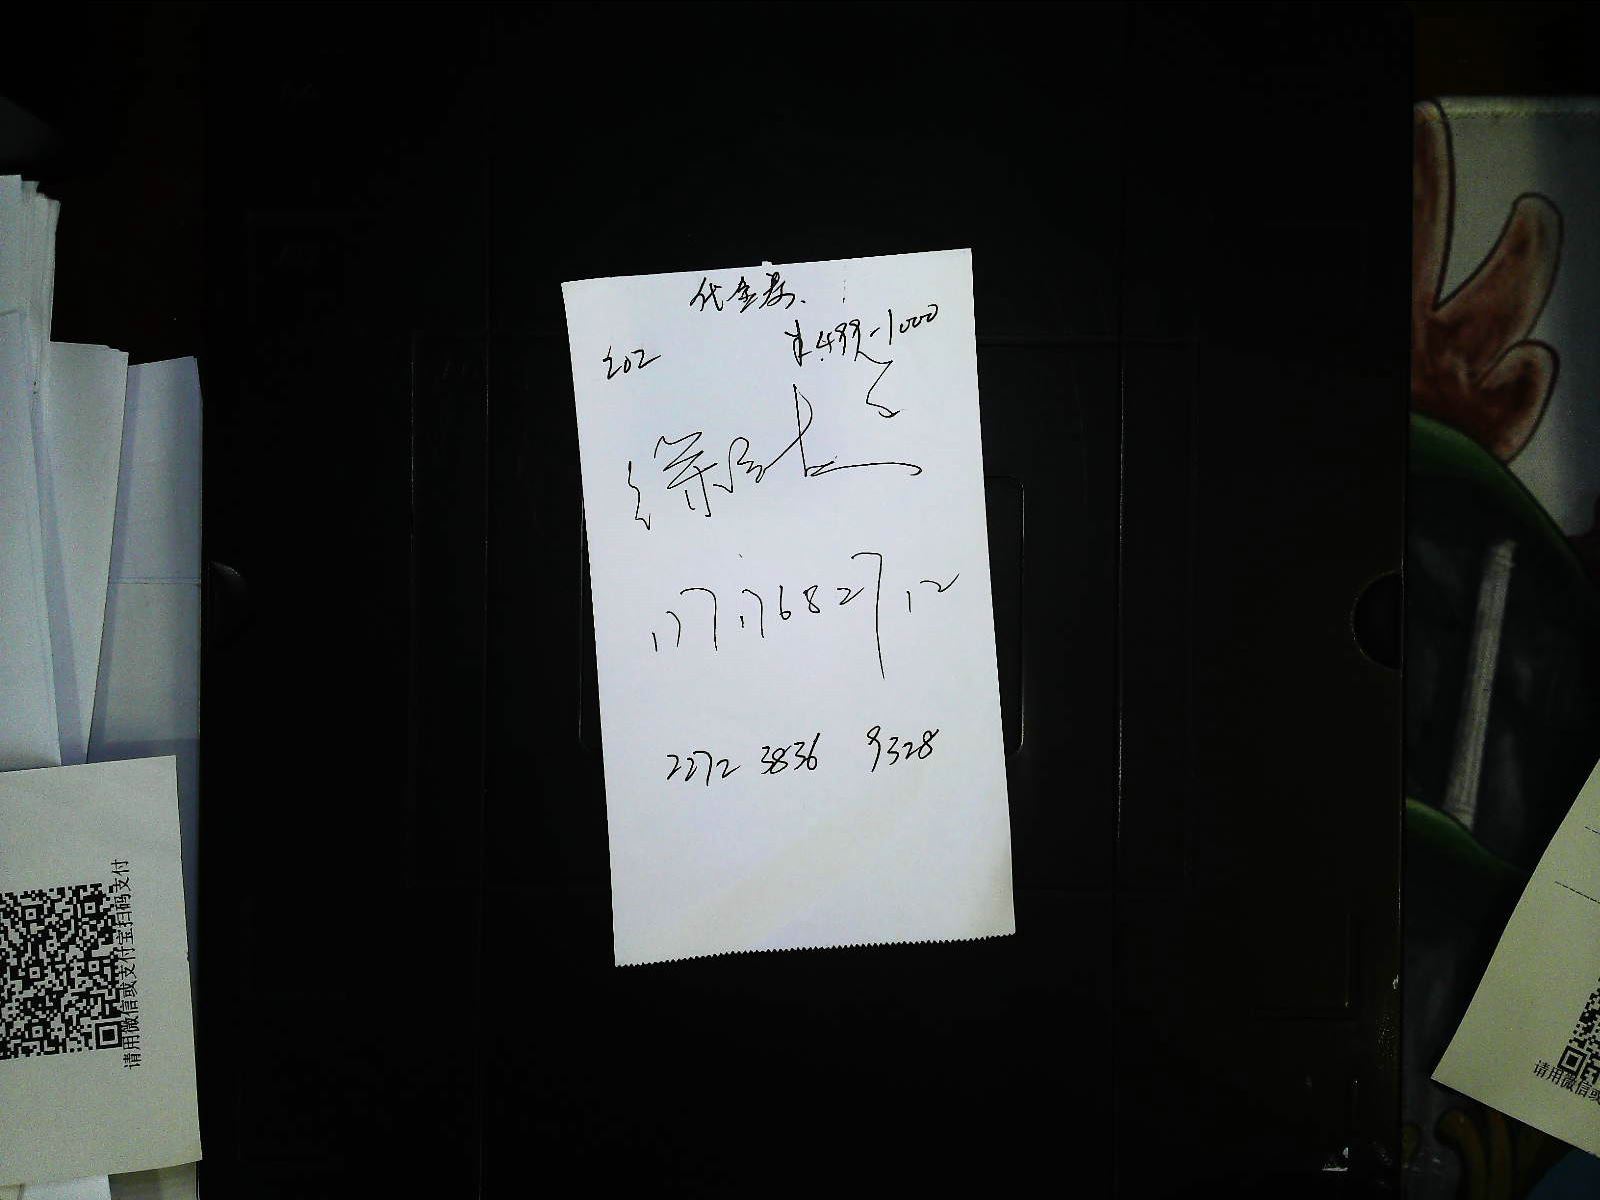 代金券.
202
499-1000
17717682712
2272 3836 9328
请用微信或支付宝扫码支付
请用微信或